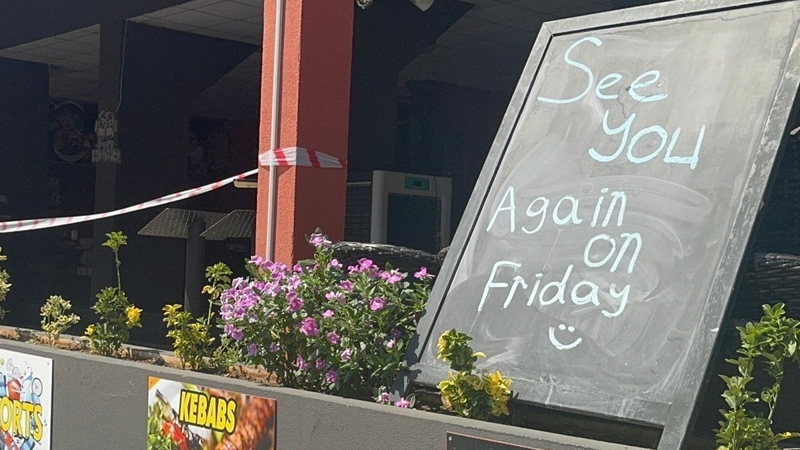 See
You
Again
on
Friday
KEBABS